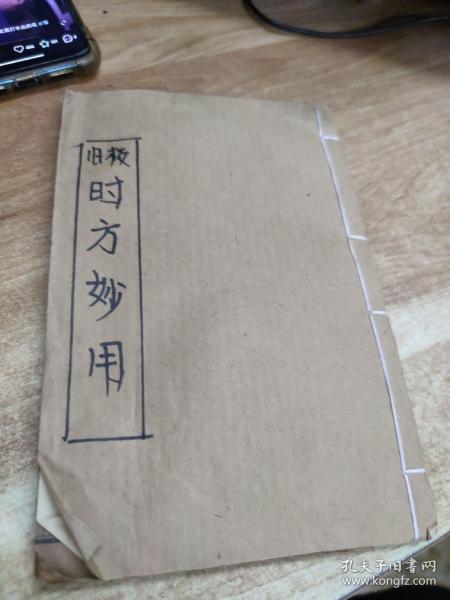 旧板
时方妙用
孔夫子旧书网
www.kongfz.com